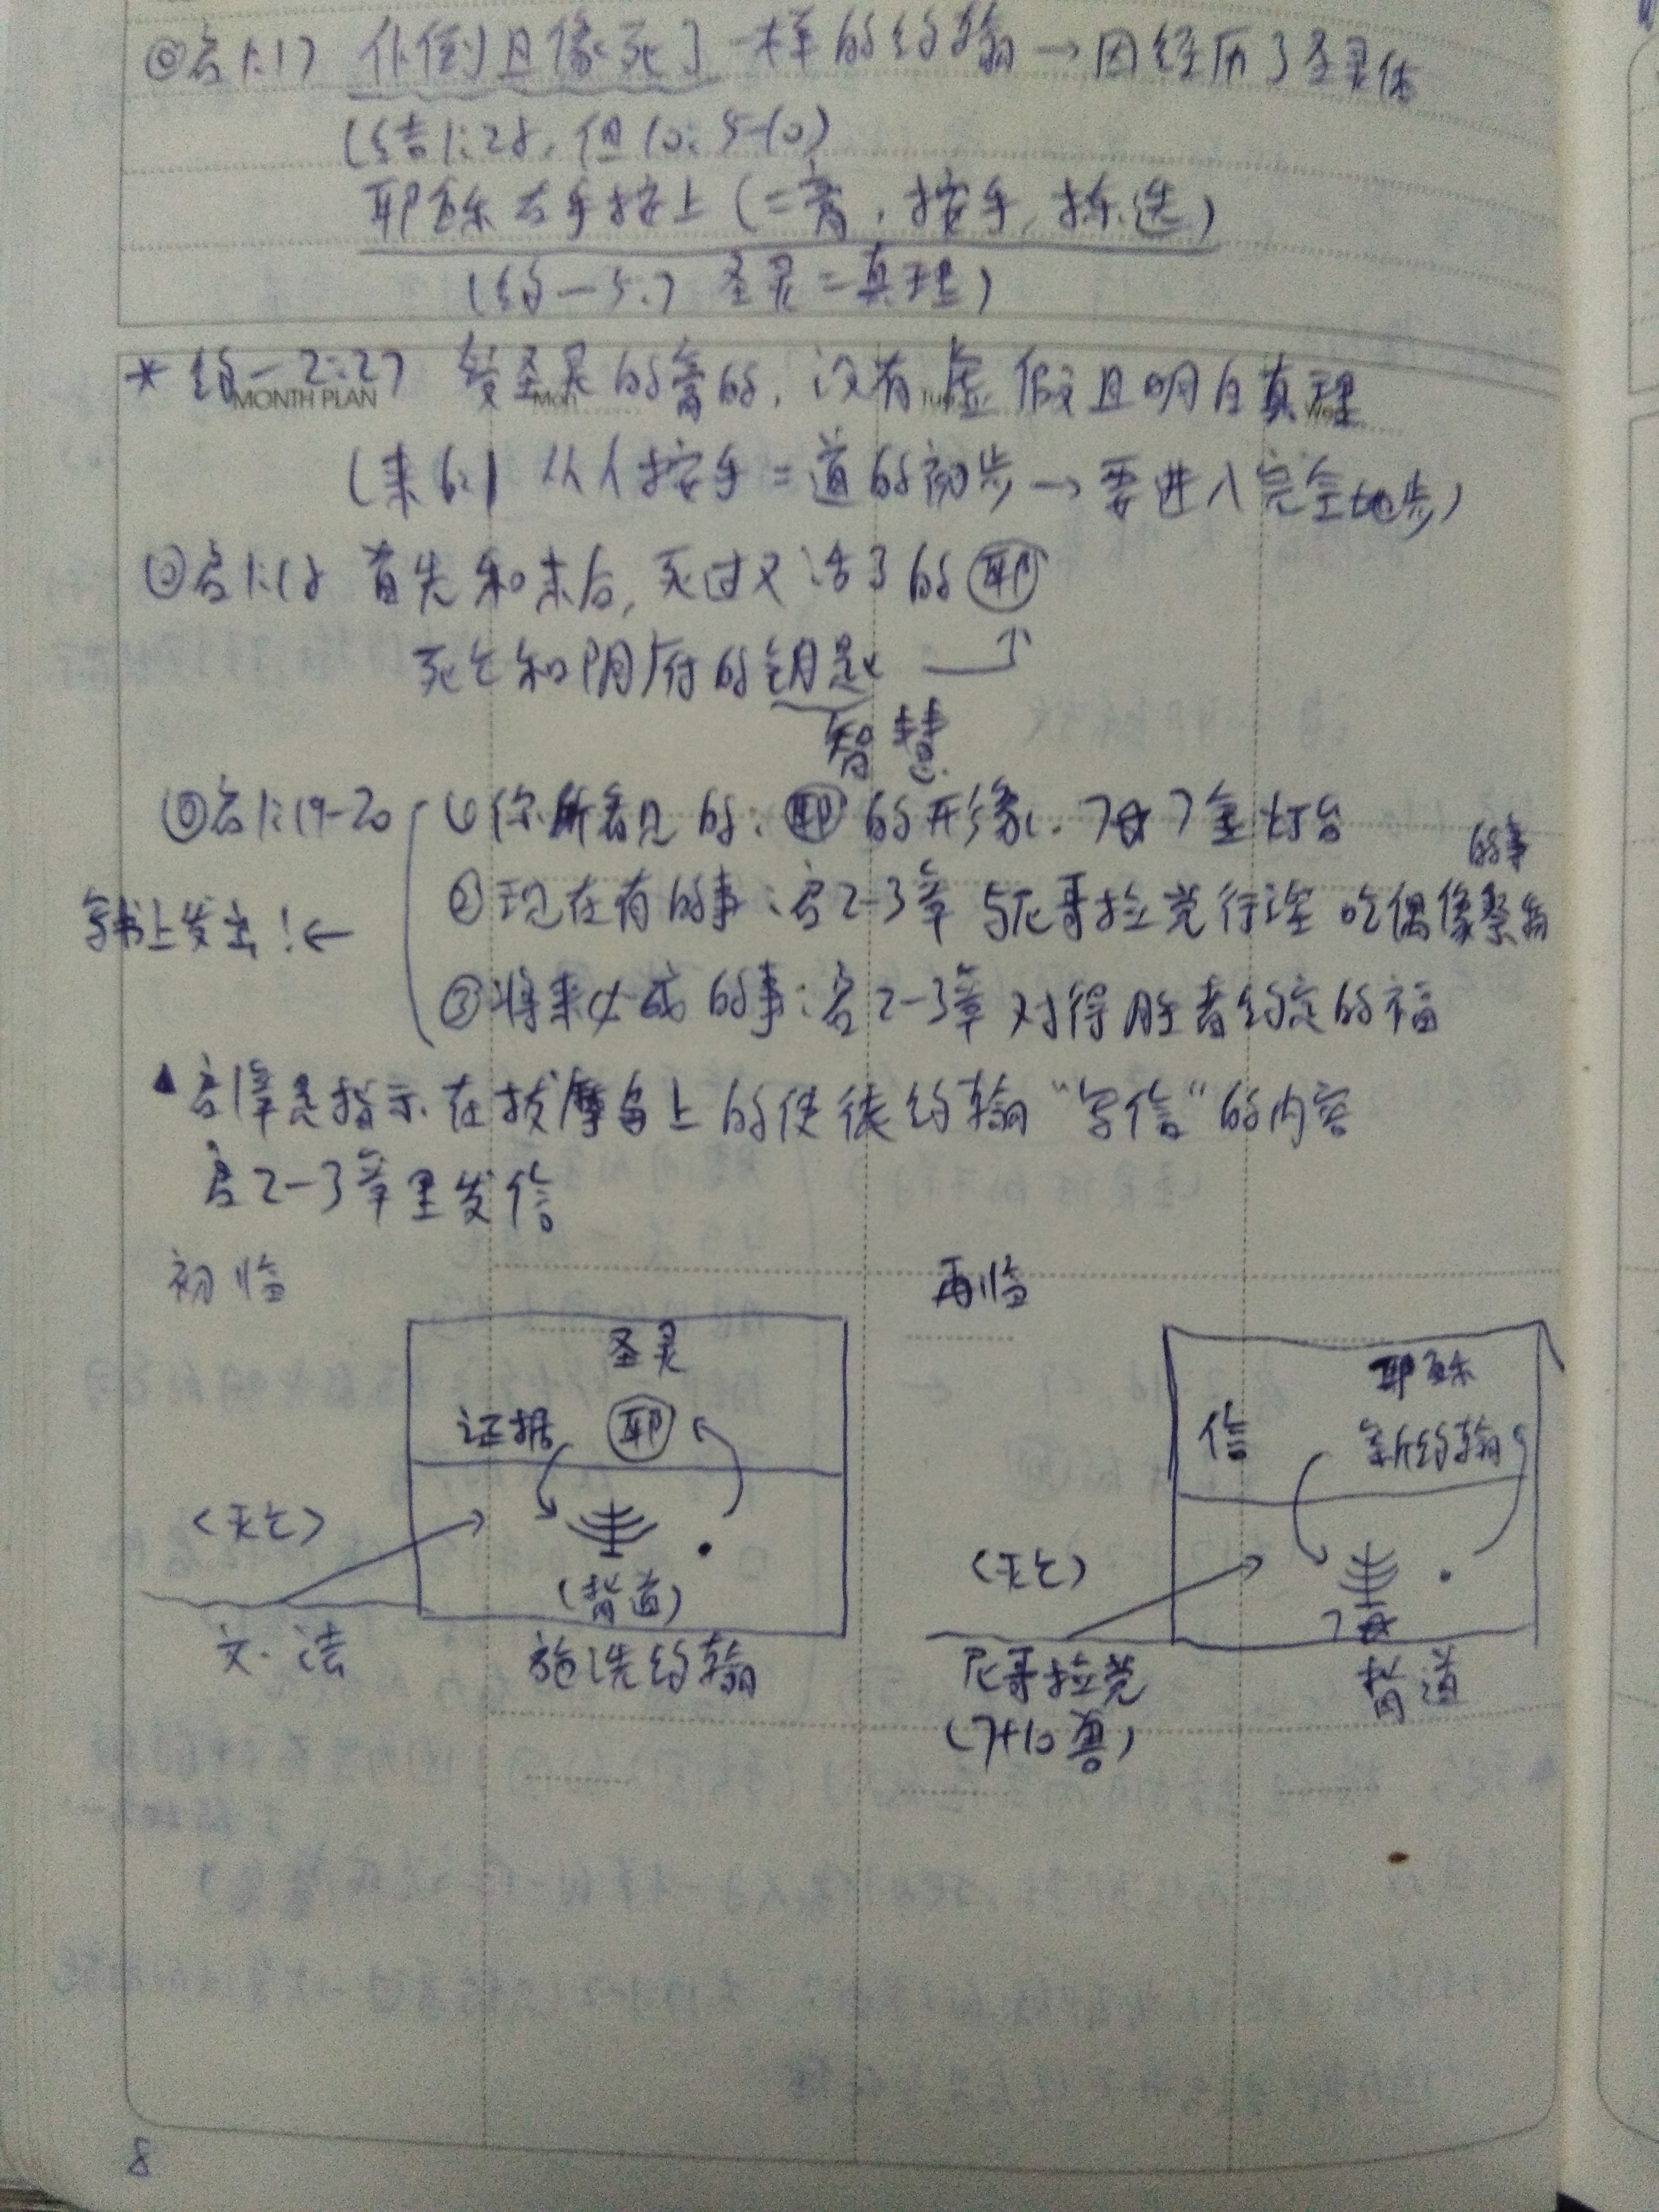 ◎启1:17 仆倒且像死了一样的约翰→因经历了圣灵体
(结1:28, 但10:5-10)
耶稣右手按上(=膏, 按手, 拣选)
(约一5:7 圣灵=真理)
MONTH PLAN
* 约一2:27 受圣灵的膏的, 没有虚假且明白真理
(来6:1 从人按手=道的初步→要进入完全地步)
◎启1:18 首先和末后, 死过又活了的耶
死亡和阴府的钥匙
智慧
◎启1:19-20 ①你所看见的: 耶的形像. 7星7金灯台
②现在有的事: 启2-3章 与尼哥拉党行淫 吃偶像祭物的事
写书上发出!←
③将来必成的事: 启2-3章 对得胜者约定的福
▲启1章是指示在拔摩岛上的使徒约翰"写信"的内容
启2-3章里发信
初临
圣灵
证据 耶
<灭亡>
(背道)
文.法
施洗约翰
再临
耶稣
信 新约翰
<灭亡>
7星
尼哥拉党
(7+10兽)
背道
8